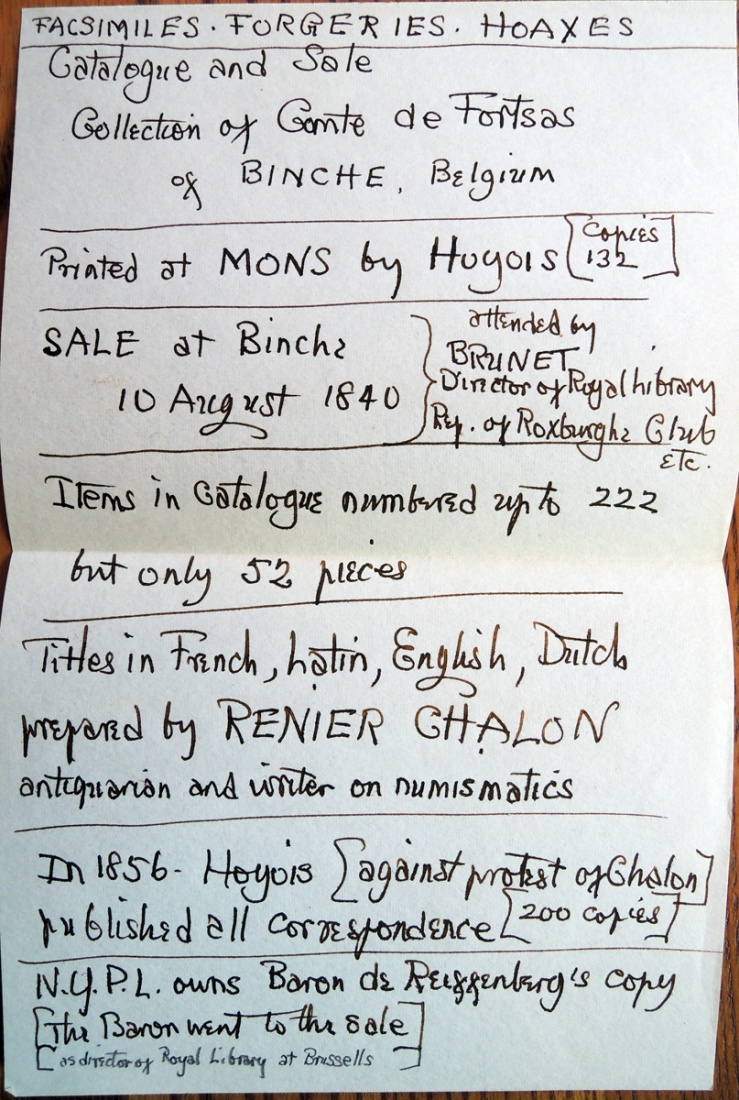 FACSIMILES · FORGERIES · HOAXES
Catalogue and Sale
Collection of Comte de Fortsas
of BINCHE, Belgium
Printed at MONS by Hoyois [Copies 132]
SALE at Binche
10 August 1840
attended by
BRUNET
Director of Royal Library
Rep. of Roxburghe Club
Etc.
Items in Catalogue numbered up to 222
but only 52 pieces
Titles in French, Latin, English, Dutch
prepared by RENIER CHALON
antiquarian and writer on numismatics
In 1856 - Hoyois [against protest of Chalon]
published all correspondence [200 copies]
N.Y.P.L. owns Baron de Reiffenberg's copy
[The Baron went to the sale]
[as director of Royal Library at Brussells]